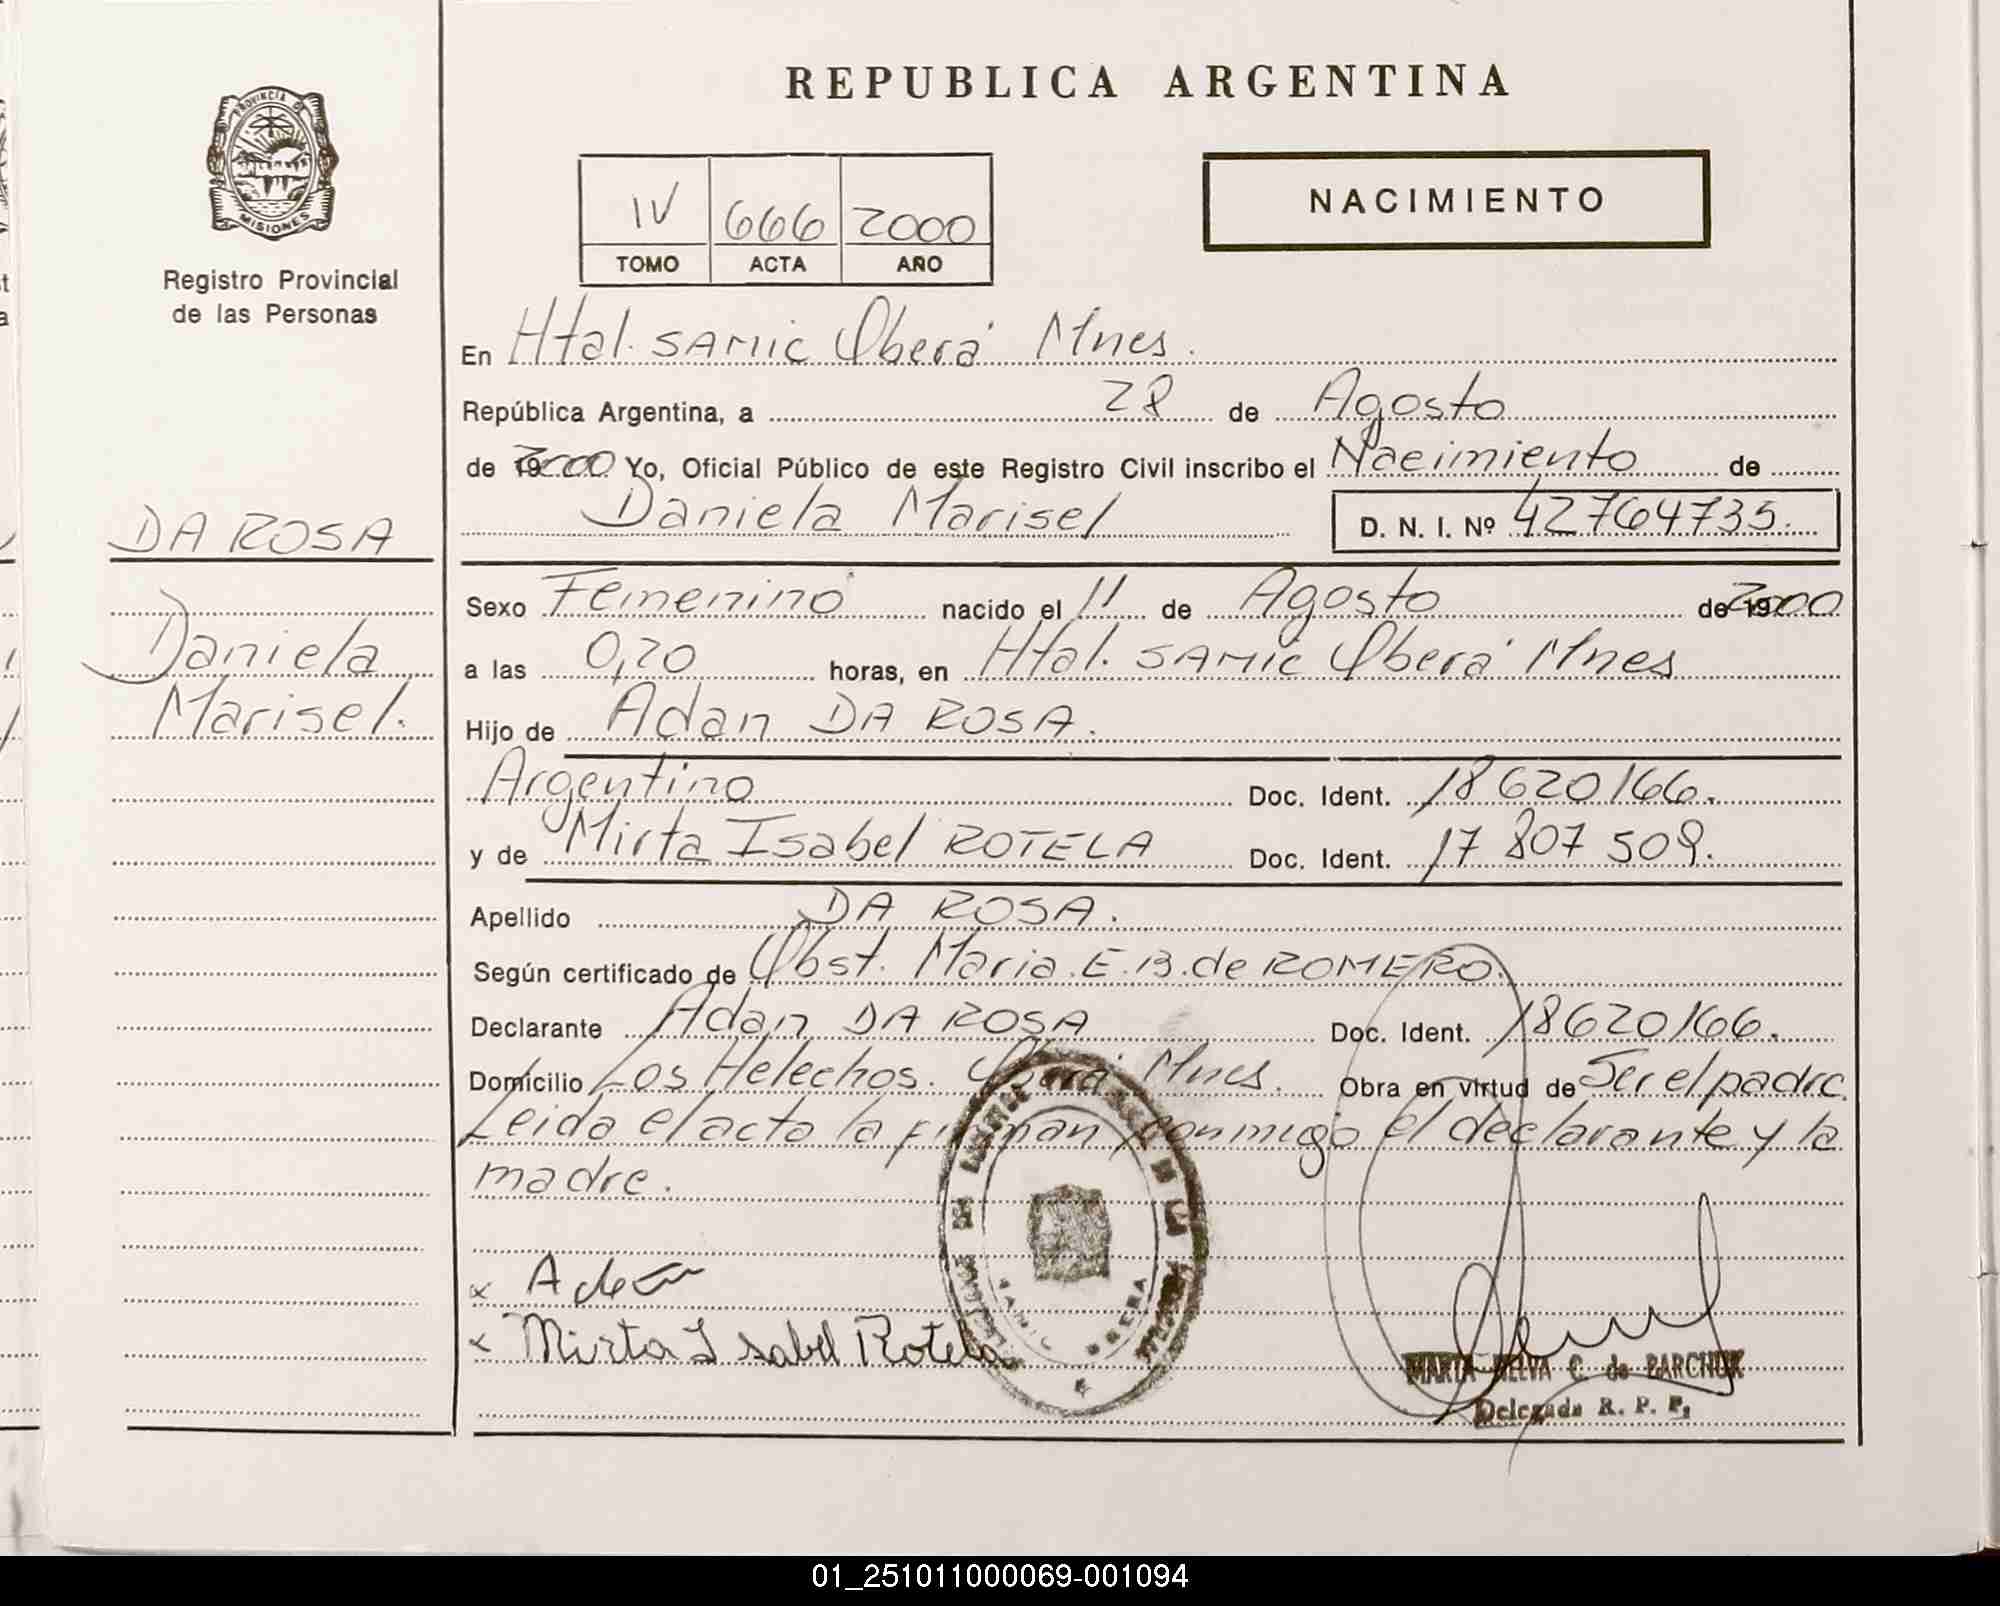 PROVINCIA DE
MISIONES
Registro Provincial
de las Personas
DA ROSA
Daniela
Marisel.
REPUBLICA ARGENTINA
IV 666 2000
TOMO ACTA AÑO
NACIMIENTO
En Htal. SAMIC Oberá Mnes.
República Argentina, a 28 de Agosto
de 2000 Yo, Oficial Público de este Registro Civil inscribo el Nacimiento de
Daniela Marisel D. N. I. Nº 42764735.
Sexo Femenino nacido el 11 de Agosto de 2000
a las 0,20 horas, en Htal. SAMIC Oberá Mnes
Hijo de Adan DA ROSA.
Argentino Doc. Ident. 18620166.
y de Mirta Isabel ROTELA Doc. Ident. 17 807 509.
Apellido DA ROSA.
Según certificado de Obst. Maria E.B. de ROMERO.
Declarante Adan DA ROSA Doc. Ident. 18620166.
Domicilio Los Helechos. Oberá Mnes. Obra en virtud de Ser el padre.
Leida el acta la firman conmigo el declarante y la
madre.
x Adan
x Mirta Isabel Rotela
MARTA NELVA C. de PARCHUK
Delegada R. P. P.
01_251011000069-001094